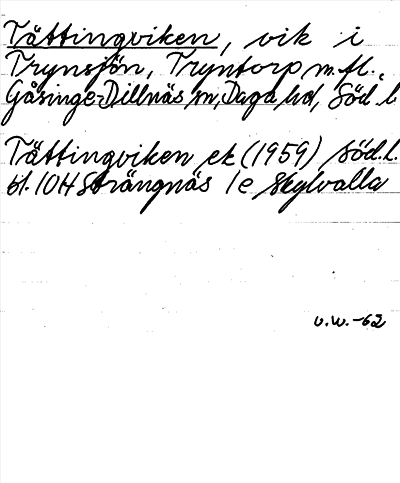 Tättingviken, vik i
Trynsjön, Tryntorp m.fl.,
Gåsinge-Dillnäs sn, Daga hd, Söd. l.
Tättingviken ek (1959) Söd.l.
bl. 10H Strängnäs 1e Skylvalla
v.W. -62